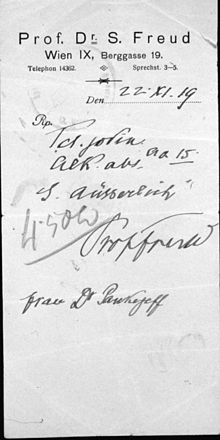 Prof. Dr. S. Freud
Wien IX, Berggasse 19.
Telephon 14362. Sprechst. 3–5.
Den 22.XI.19
Rp.
Tct. jodin.
Alk. abs. aa 15
S. äusserlich
Prof Freud
Frau Dr Pankejeff